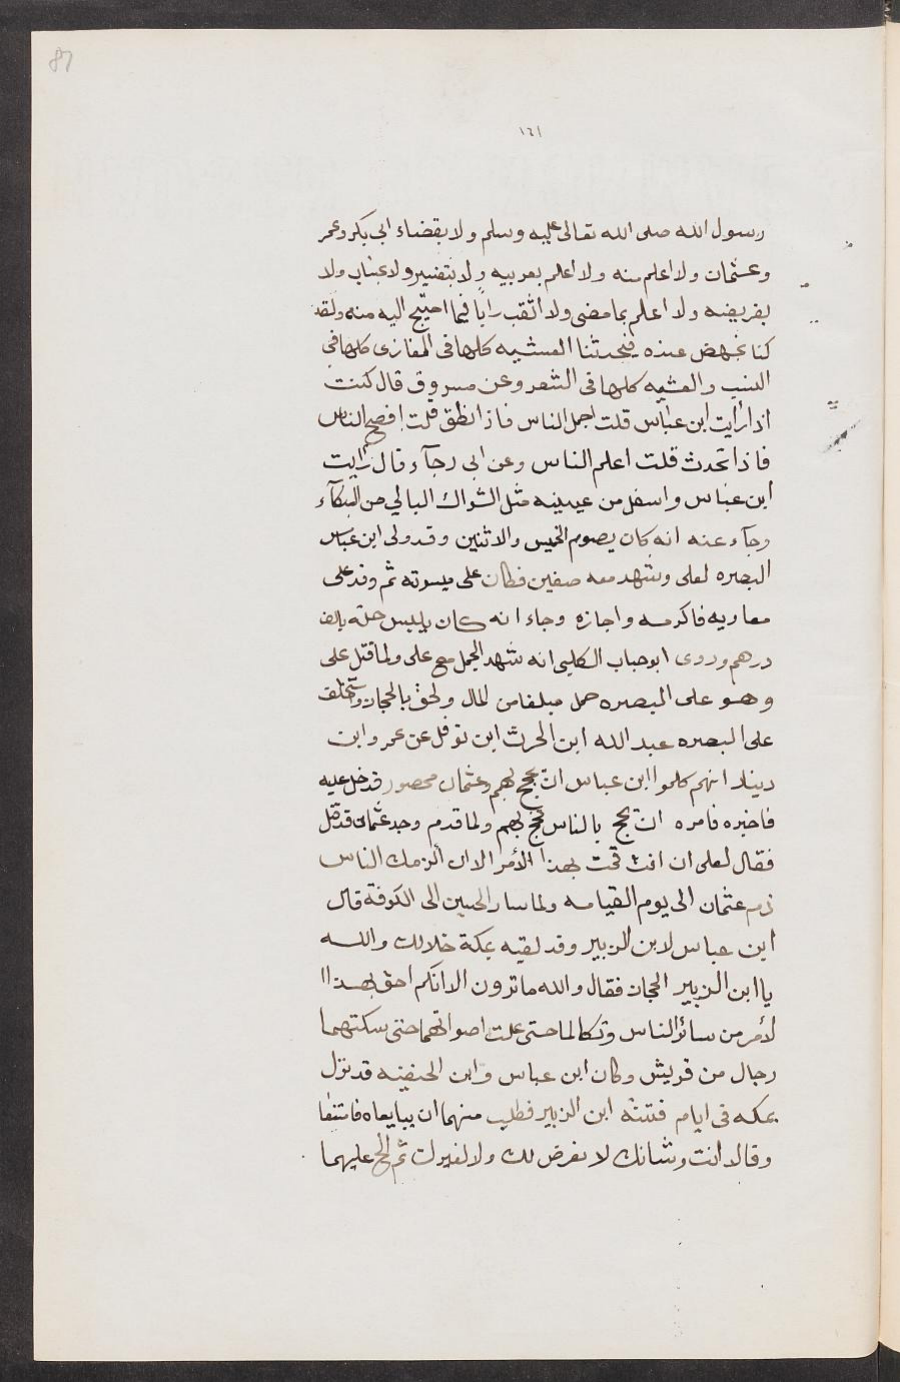 87
١٦١
رسول الله صلى الله تعالى عليه وسلم ولا بقضاء ابى بكر وعمر
وعثمان ولا اعلم منه ولا اعلم بعربيه ولا بتفسير ولا بحساب ولا
بفريضه ولا اعلم بما مضى ولا اثقب رايا فيما احتيج اليه منه ولقد
كنا نحضر عنده فيحدثنا العشيه كلها فى المغازى كلها فى
النسب والعشيه كلها فى الشعر وعن مسروق قال كنت
اذا رايت ابن عباس قلت اجمل الناس فاذا نطق قلت افصح الناس
فاذا تحدث قلت اعلم الناس وعن ابى رجآء قال رايت
ابن عباس واسفل من عينيه مثل الشواك البالي من البكآء
وجآء عنه انه كان يصوم الخميس والاثنين وقد ولى ابن عباس
البصره لعلى وشهد معه صفين فكان على ميسرته ثم وفد على
معاويه فاكرمه واجازه وجاء انه كان يلبس حلة بالف
درهم وروى ابو حباب الكلبى انه شهد الجمل مع على ولما قتل على
وهو على البصره حمل مبلغا من المال ولحق بالحجاز واستخلف
على البصره عبد الله ابن الحرث ابن نوفل عن عمر وابن
دينار انهم كلموا ابن عباس ان يحج بهم وعثمان محصور فدخل عليه
فاخبره فامره ان يحج بالناس فحج بهم ولما قدم وجد عثمان قد قتل
فقال لعلى ان انت قمت بهذا الأمر الان الزمك الناس
دم عثمان الى يوم القيامه ولما سار الحسين الى الكوفة قال
ابن عباس لابن الزبير وقد لقيه بمكة خلا لك والله
يا ابن الزبير الحجاز فقال والله ما ترون الا انكم احق بهذا ا
لأمر من سائر الناس وتكالما حتى علت اصواتهما حتى سكتهما
رجال من قريش وكان ابن عباس وابن الحنفيه قد نزلا
بمكه فى ايام فتنة ابن الزبير فطلب منهما ان يبايعاه فامتنعا
وقالا انت وشانك لا نعرض لك ولا لغيرك ثم الح عليهما